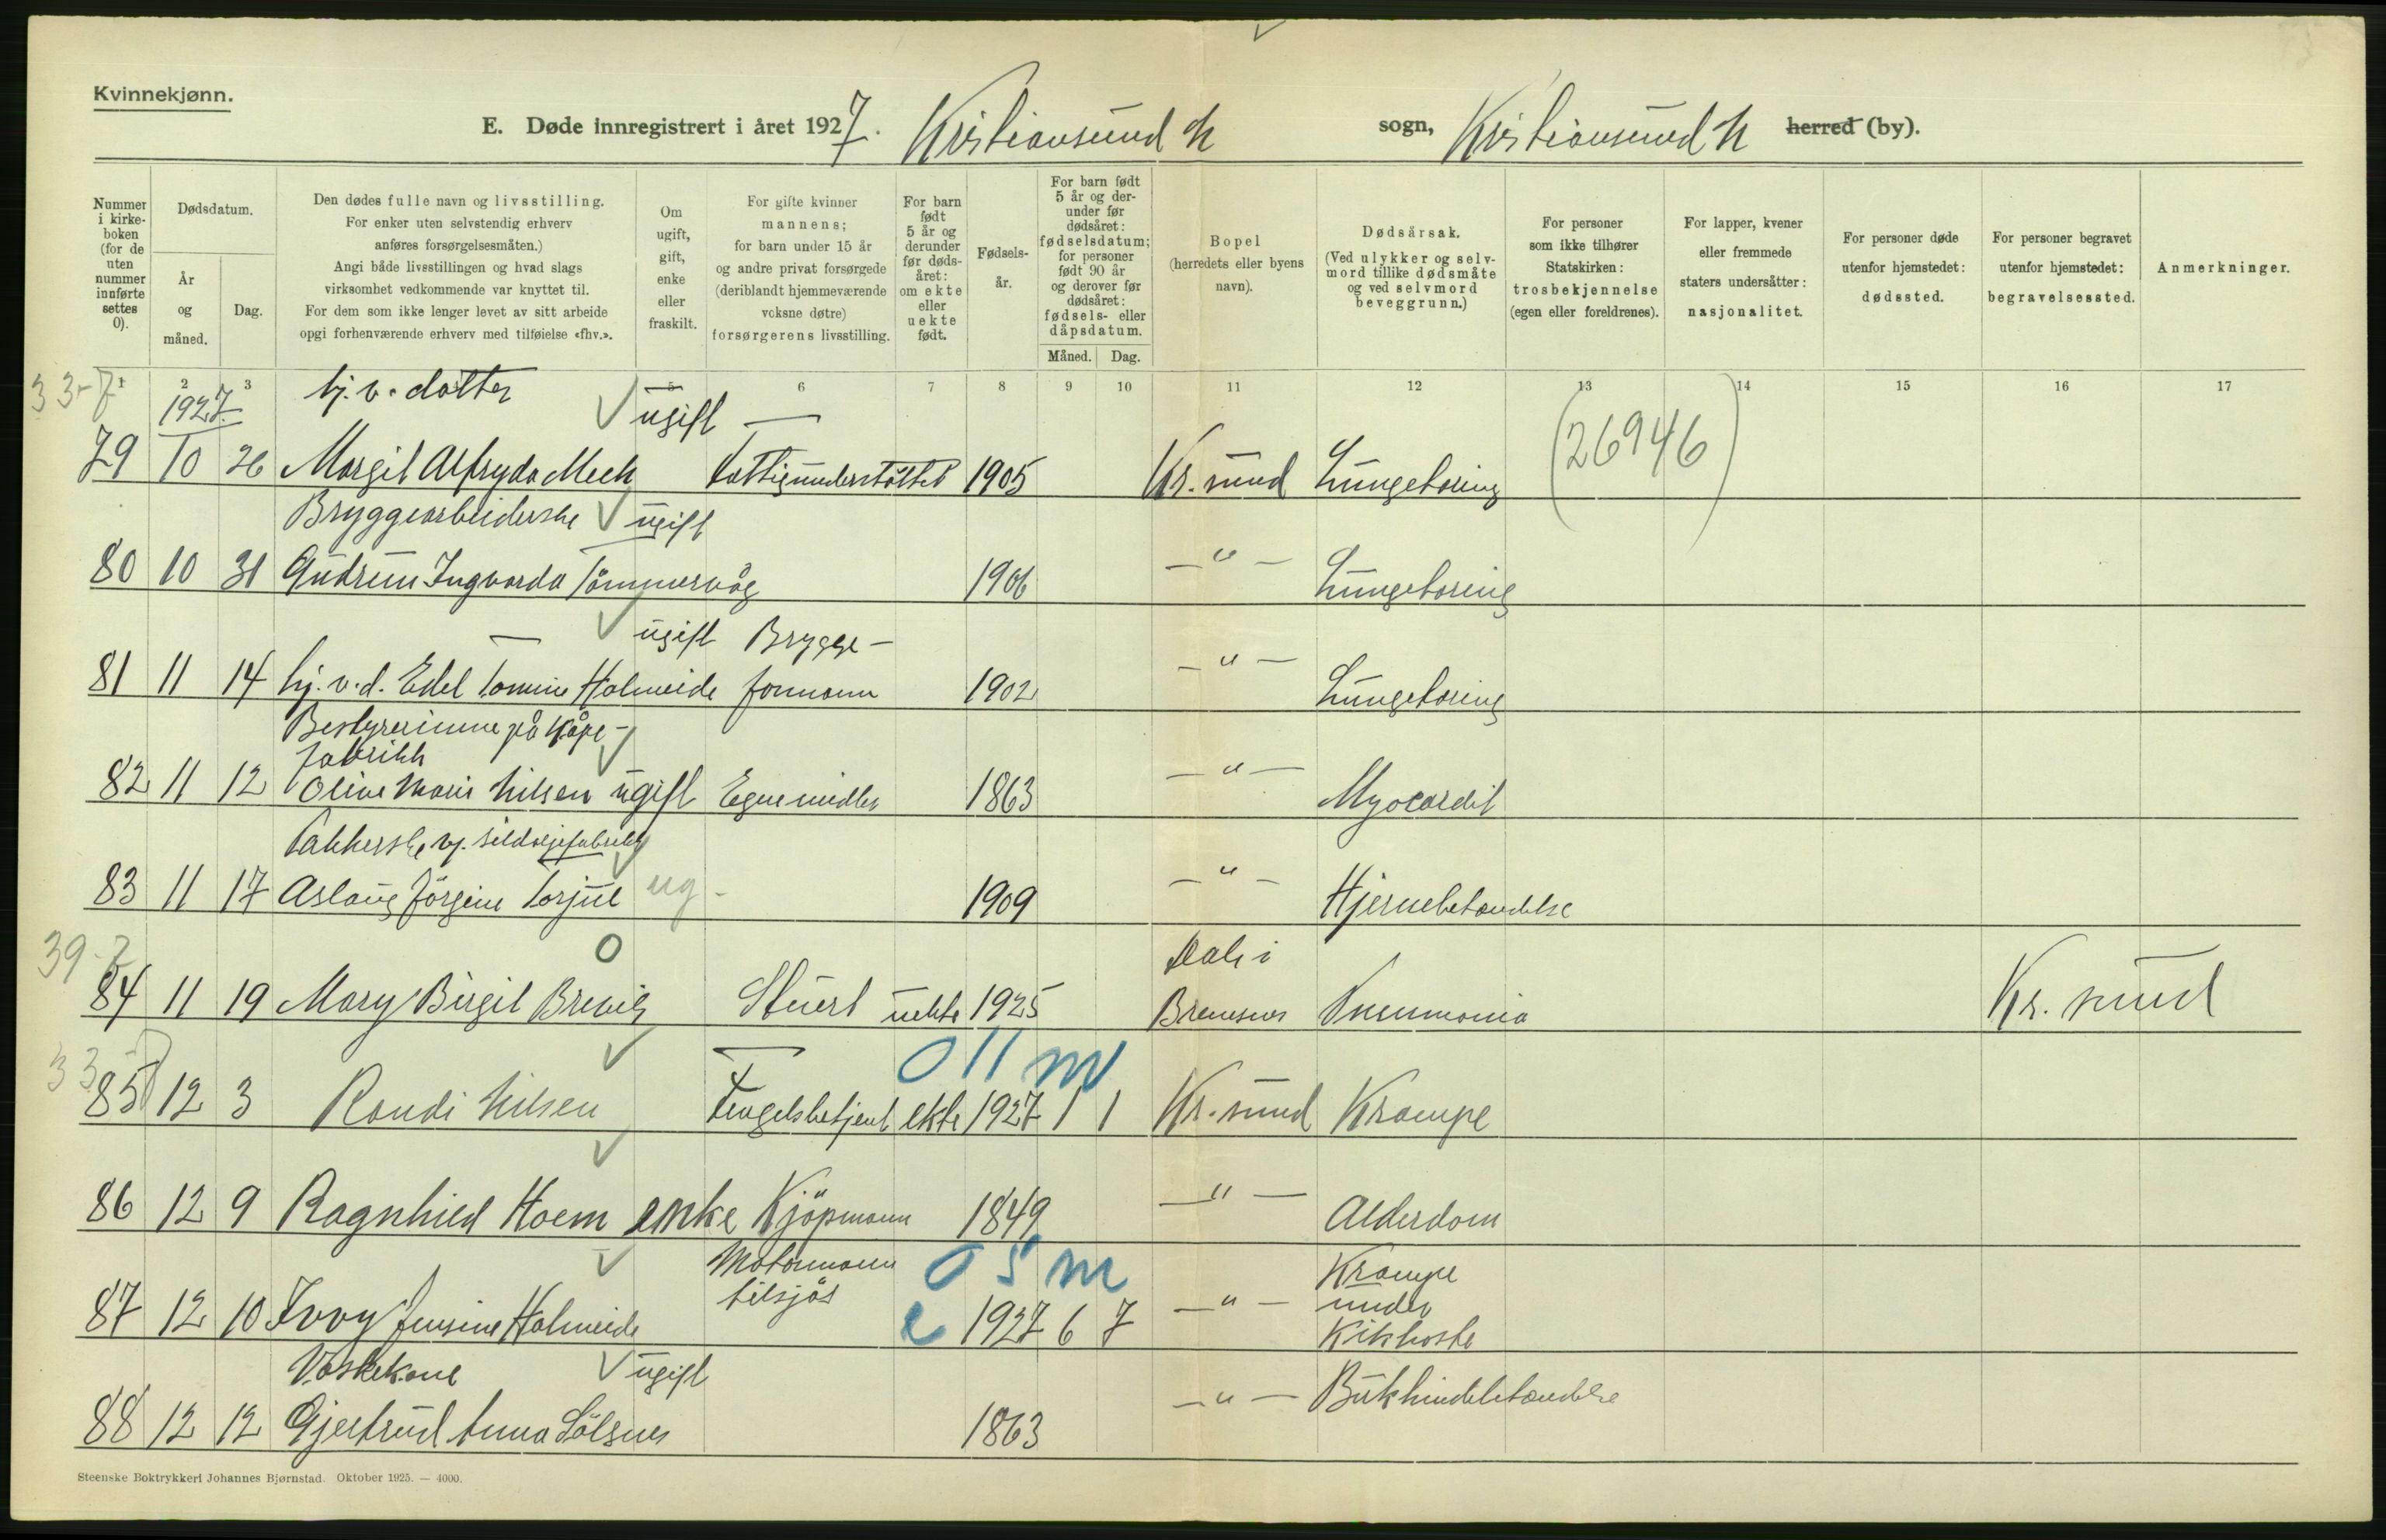 Kvinnekjønn.
E. Døde innregistrert i året 1927. Kristiansund N sogn, Kristiansund N herred (by).
Nummer i kirkeboken (for de uten nummer innførte settes 0).
Dødsdatum.
År og måned.
Dag.
Den dødes fulle navn og livsstilling.
For enker uten selvstendig erhverv
anføres forsørgelsesmåten.)
Angi både livsstillingen og hvad slags
virksomhet vedkommende var knyttet til.
For dem som ikke lenger levet av sitt arbeide
opgi forhenværende erhverv med tilføielse «fhv.».
Om ugift, gift, enke eller fraskilt.
For gifte kvinner
mannens;
for barn under 15 år
og andre privat forsørgede
(deriblandt hjemmeværende
voksne døtre)
forsørgerens livsstilling.
For barn født 5 år og derunder før dødsåret: om ekte eller uekte født.
Fødselsår.
For barn født 5 år og derunder før dødsåret: fødselsdatum; for personer født 90 år og derover før dødsåret: fødsels- eller dåpsdatum.
Måned. Dag.
Bopel
(herredets eller byens
navn).
Dødsårsak.
(Ved ulykker og selvmord tillike dødsmåte og ved selvmord beveggrunn.)
For personer
som ikke tilhører
Statskirken:
trosbekjennelse
(egen eller foreldrenes).
For lapper, kvener
eller fremmede
staters undersåtter:
nasjonalitet.
For personer døde
utenfor hjemstedet:
dødssted.
For personer begravet
utenfor hjemstedet:
begravelsessted.
Anmerkninger.
1 2 3 5 6 7 8 9 10 11 12 13 14 15 16 17
33-7
1927 hj.v. datter ugift —
79 10 26 Margit Alfryda Mech Fattigunderstöttet 1905 Kr.sund Lungetæring (26946)
Bryggearbeiderske ugift
80 10 31 Gudrun Ingvarda Tömmervåg 1906 —"— Lungetæring
— ugift Brygge-
81 11 14 hj.v.d. Edel Tomine Halmeide formann 1902 —"— Lungetæring
Bestyrerinne på Kåpe-
fabrikk
82 11 12 Oline Marie Nilsen ugift Egne midler 1863 —"— Myocardit
Pakkerske vj. sildoljefabrikk
83 11 17 Aslaug Jörgine Torjul ug - 1909 —"— Hjernebetændelse
39-7 0 Dale i
84 11 19 Mary Birgit Brevik Stuert uekte 1925 Bremsnes Pneumonia Kr.sund
33 — 0 11 m
85 12 3 Randi Nilsen Fengelsbetjent ekte 1927 1 1 Kr.sund Krampe
86 12 9 Ragnhild Hoem enke Kjöpmann 1849 —"— Alderdom
Motormann 0 5 m Krampe
tilsjös under
87 12 10 Ivoy Jensine Halmeide e 1927 6 7 —"— Kikhoste
Vaskekone ugift
88 12 12 Gjertrud Anna Sölsnes 1863 —"— Bukhindebetændelse
Steenske Boktrykkeri Johannes Bjørnstad. Oktober 1925. — 4000.